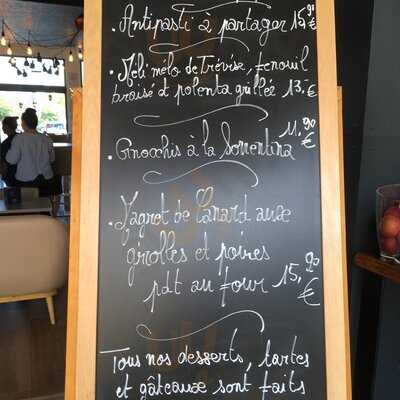 . Antipasti à partager 15,90 €
. Méli mélo de Trévise, fenouil
braisé et polenta grillée 13,- €
. Gnocchis à la Sorrentina 11,90 €
. Magret de Canard aux
girolles et poires
pdt au four 15,90 €
Tous nos desserts, tartes
et gâteaux sont faits